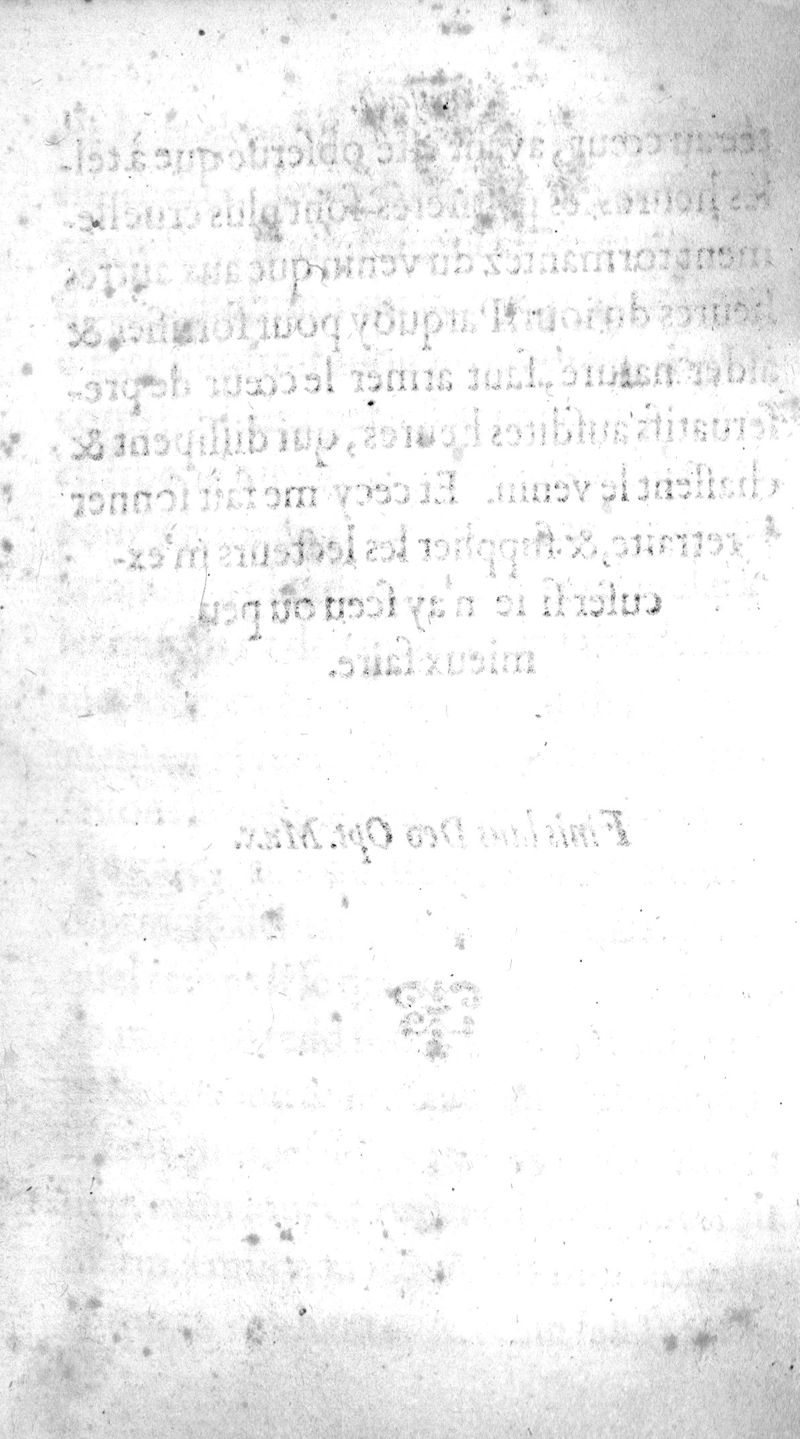 tée au cœur, ayant esté obserué que à tel-
les heures, les sont plus cruelle-
ment tormantez du venin que aux autres
heures du iour. Parquoy pour fortifier &
aider nature, faut armer le cœur de pre-
seruatifs ausdites heures, qui dissipent &
chassent le venin. Et cecy me fait sonner
retraite, & supplier les lecteurs m'ex-
cuser si ie n'ay sceu ou peu
mieux faire.
Finis laus Deo Opt. Max.